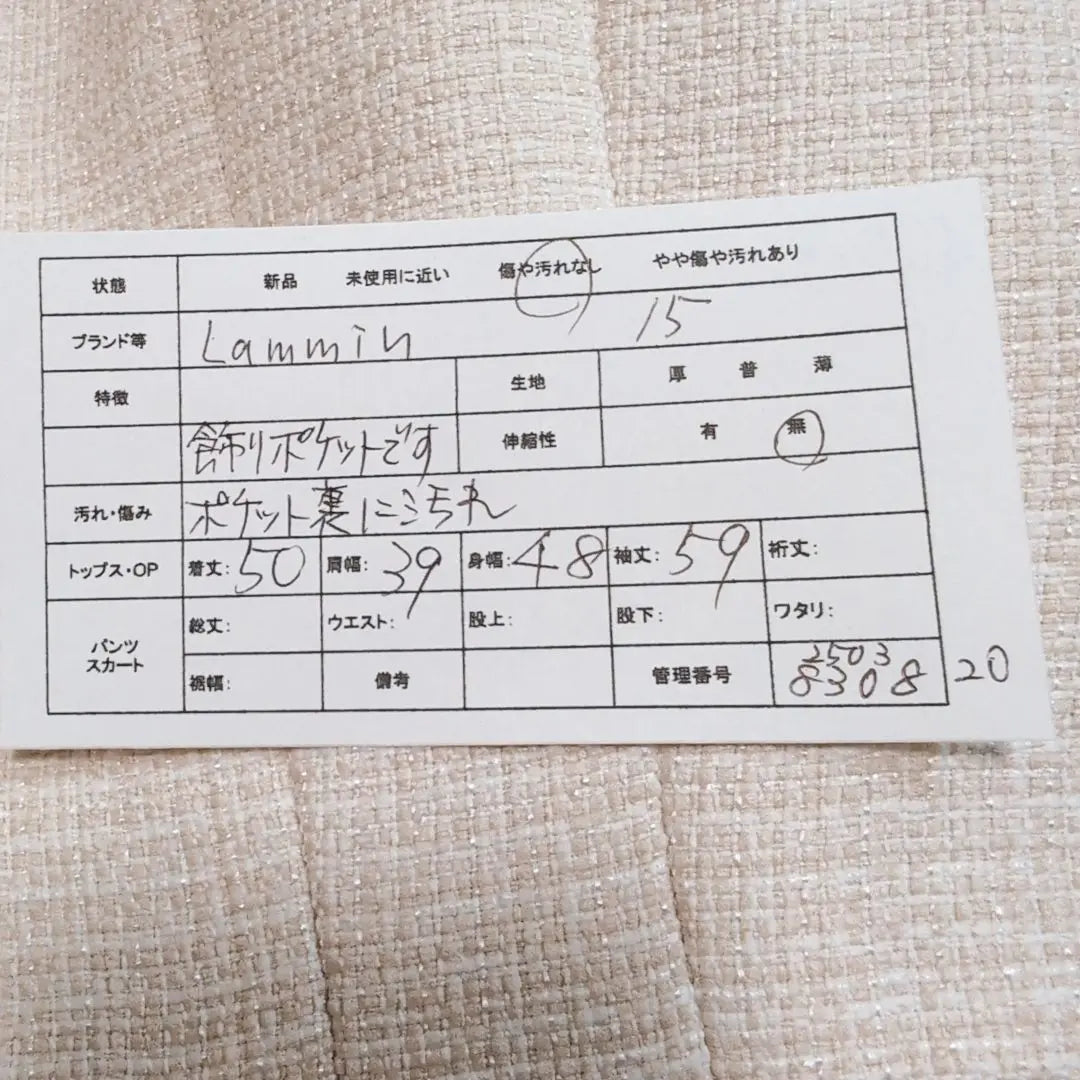 状態 新品 未使用に近い 傷や汚れなし やや傷や汚れあり
ブランド等 Lammin 15
特徴 生地 厚 普 薄
飾りポケットです 伸縮性 有 無
汚れ・傷み ポケット裏に汚れ
トップス・OP 着丈:50 肩幅:39 身幅:48 袖丈:59 裄丈:
パンツ スカート 総丈: ウエスト: 股上: 股下: ワタリ:
裾幅: 備考 管理番号 2503
8308 20